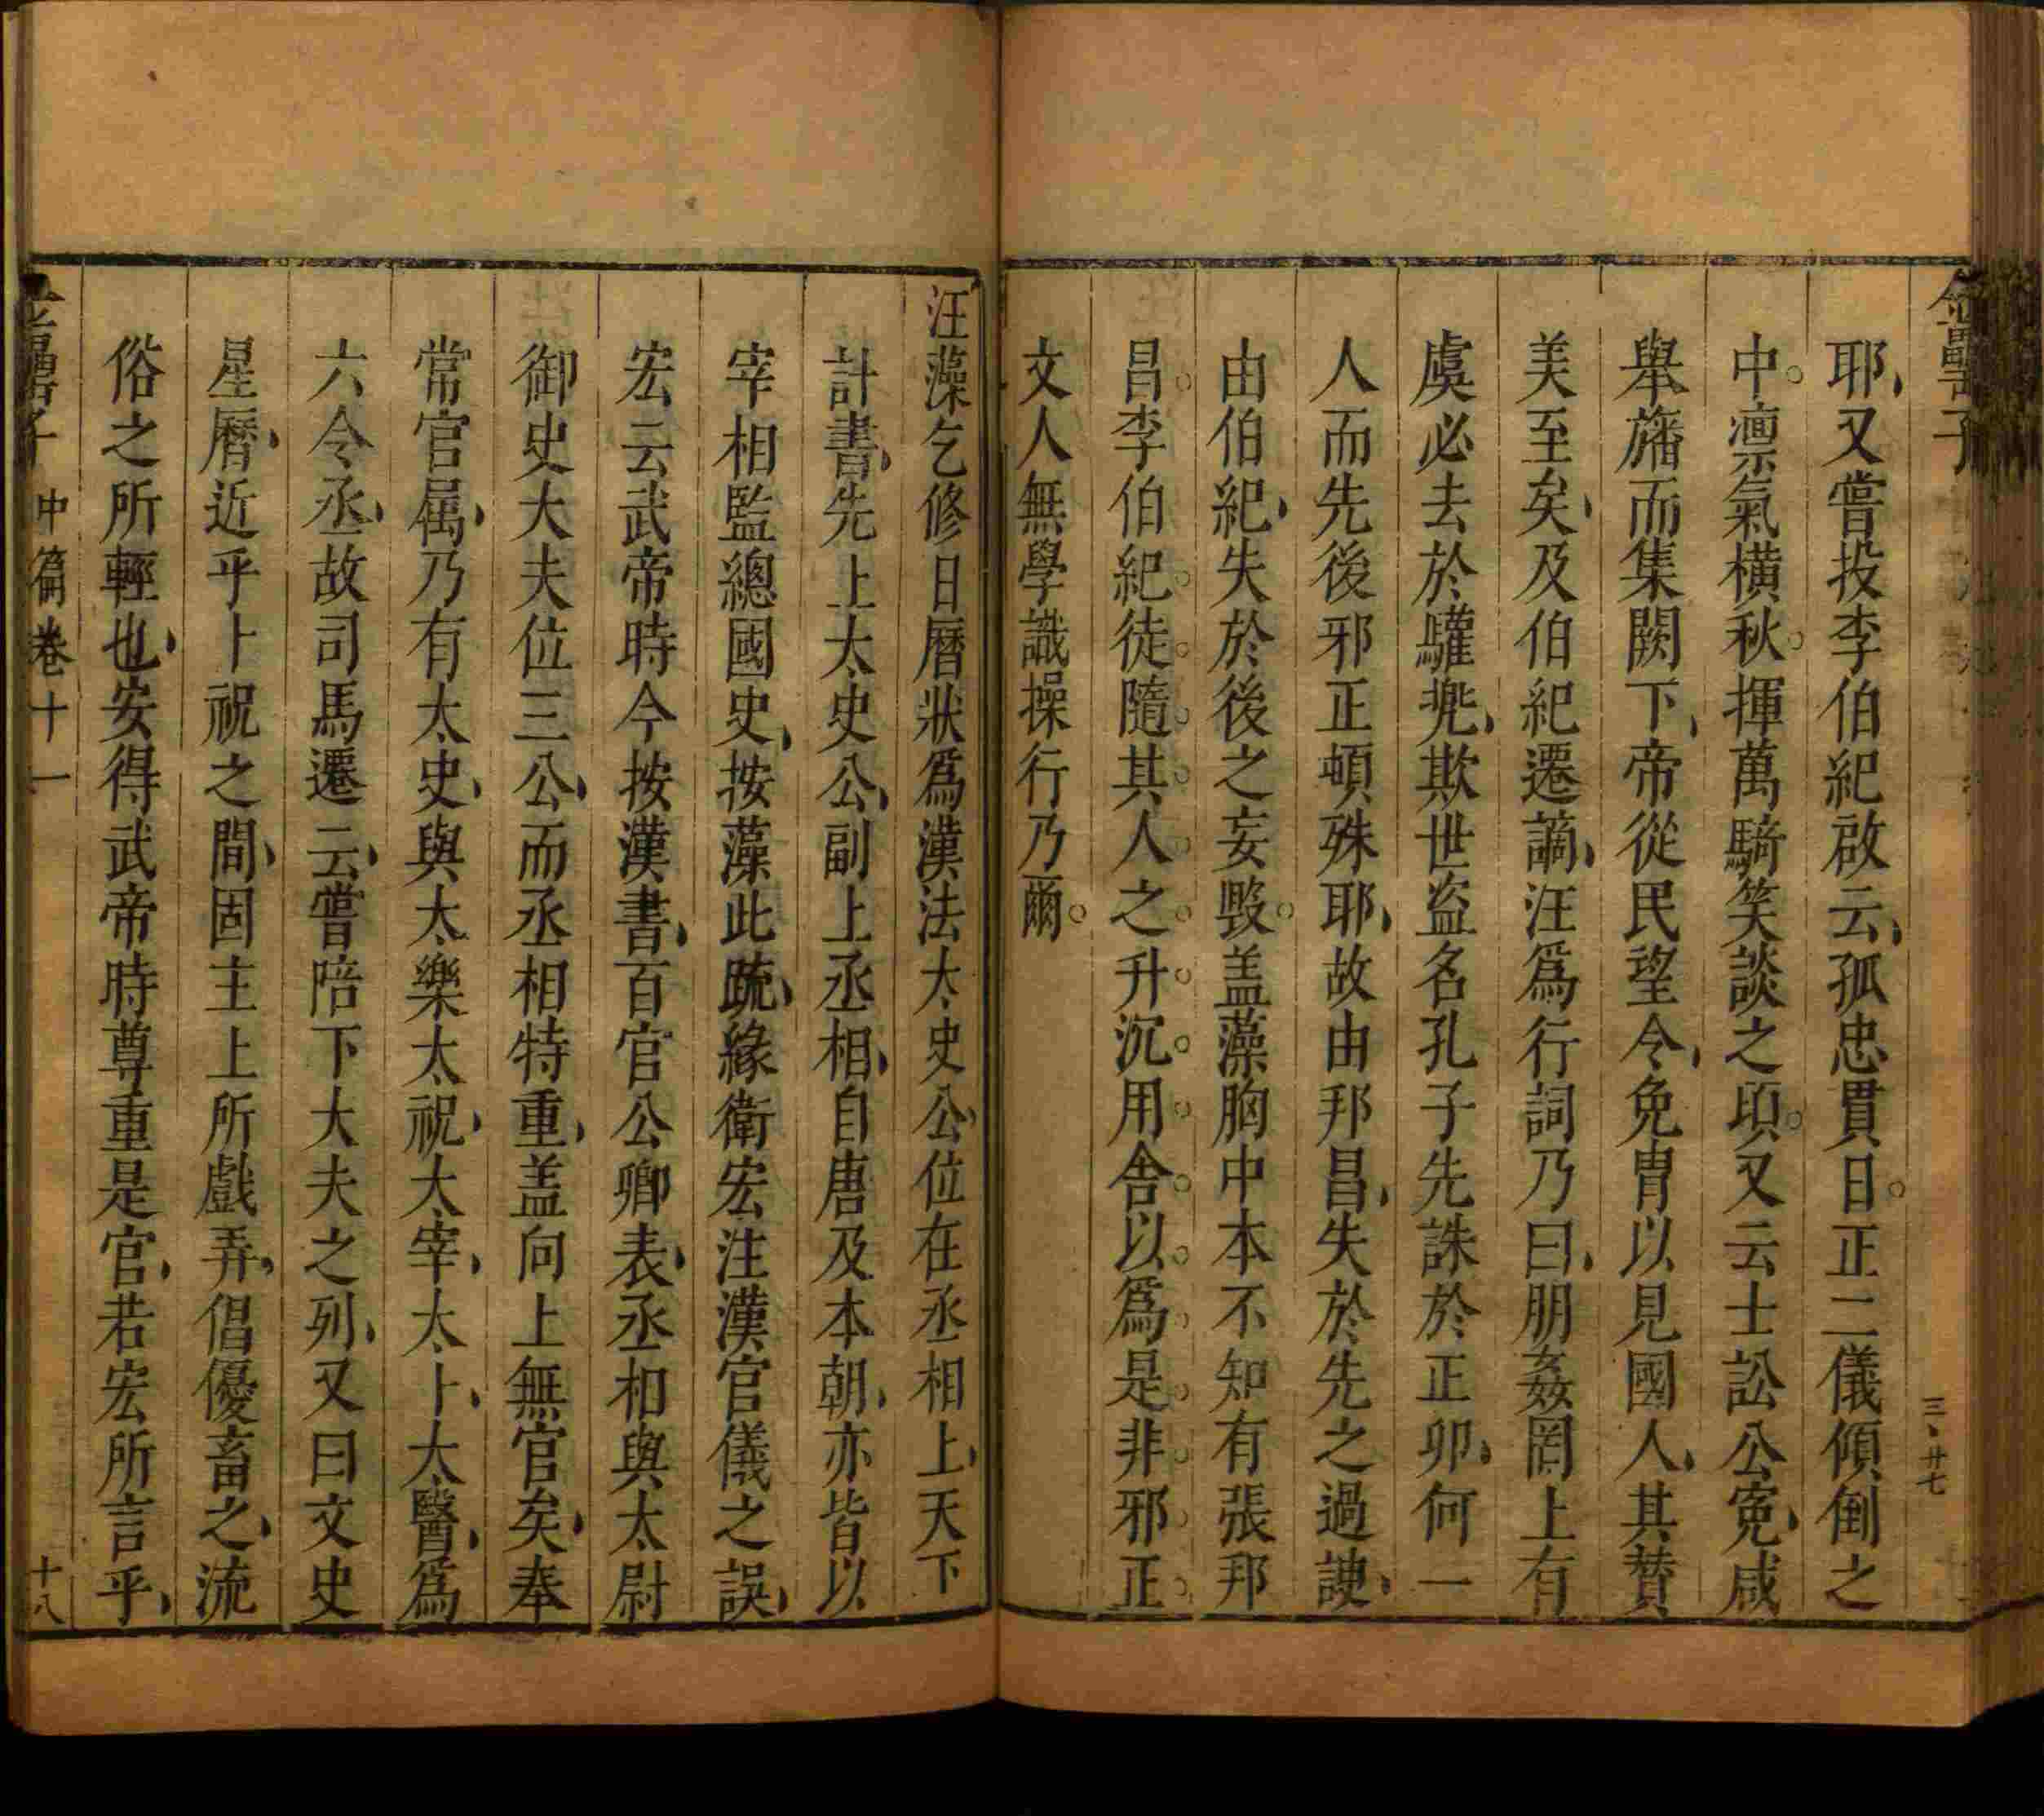 耶又嘗投李伯紀啟云孤忠貫日正二儀傾倒之
中凛氣橫秋揮萬騎笑談之頃又云士訟公寃咸
舉旛而集闕下帝從民望令免冑以見國人其賛
美至矣及伯紀遷謫汪爲行詞乃曰朋姦罔上有
虞必去於驩兠欺世盗名孔子先誅於正卯何一
人而先後邪正頓殊耶故由邦昌失於先之過諛
由伯紀失於後之妄毀盖藻胸中本不知有張邦
昌李伯紀徒隨其人之升沉用舍以爲是非邪正
文人無學識操行乃爾
汪藻乞修日曆狀爲漢法太史公位在丞相上天下
計書先上太史公副上丞相自唐及本朝亦皆以
宰相監總國史按藻此疏緣衛宏注漢官儀之誤
宏云武帝時今按漢書百官公卿表丞相與太尉
御史大夫位三公而丞相特重盖向上無官矣奉
常官属乃有太史與太樂太祝太宰太卜太醫爲
六令丞故司馬遷云嘗陪下大夫之列又曰文史
星曆近乎卜祝之間固主上所戲弄倡優畜之流
俗之所輕也安得武帝時尊重是官若宏所言乎
中篇卷十一
十八